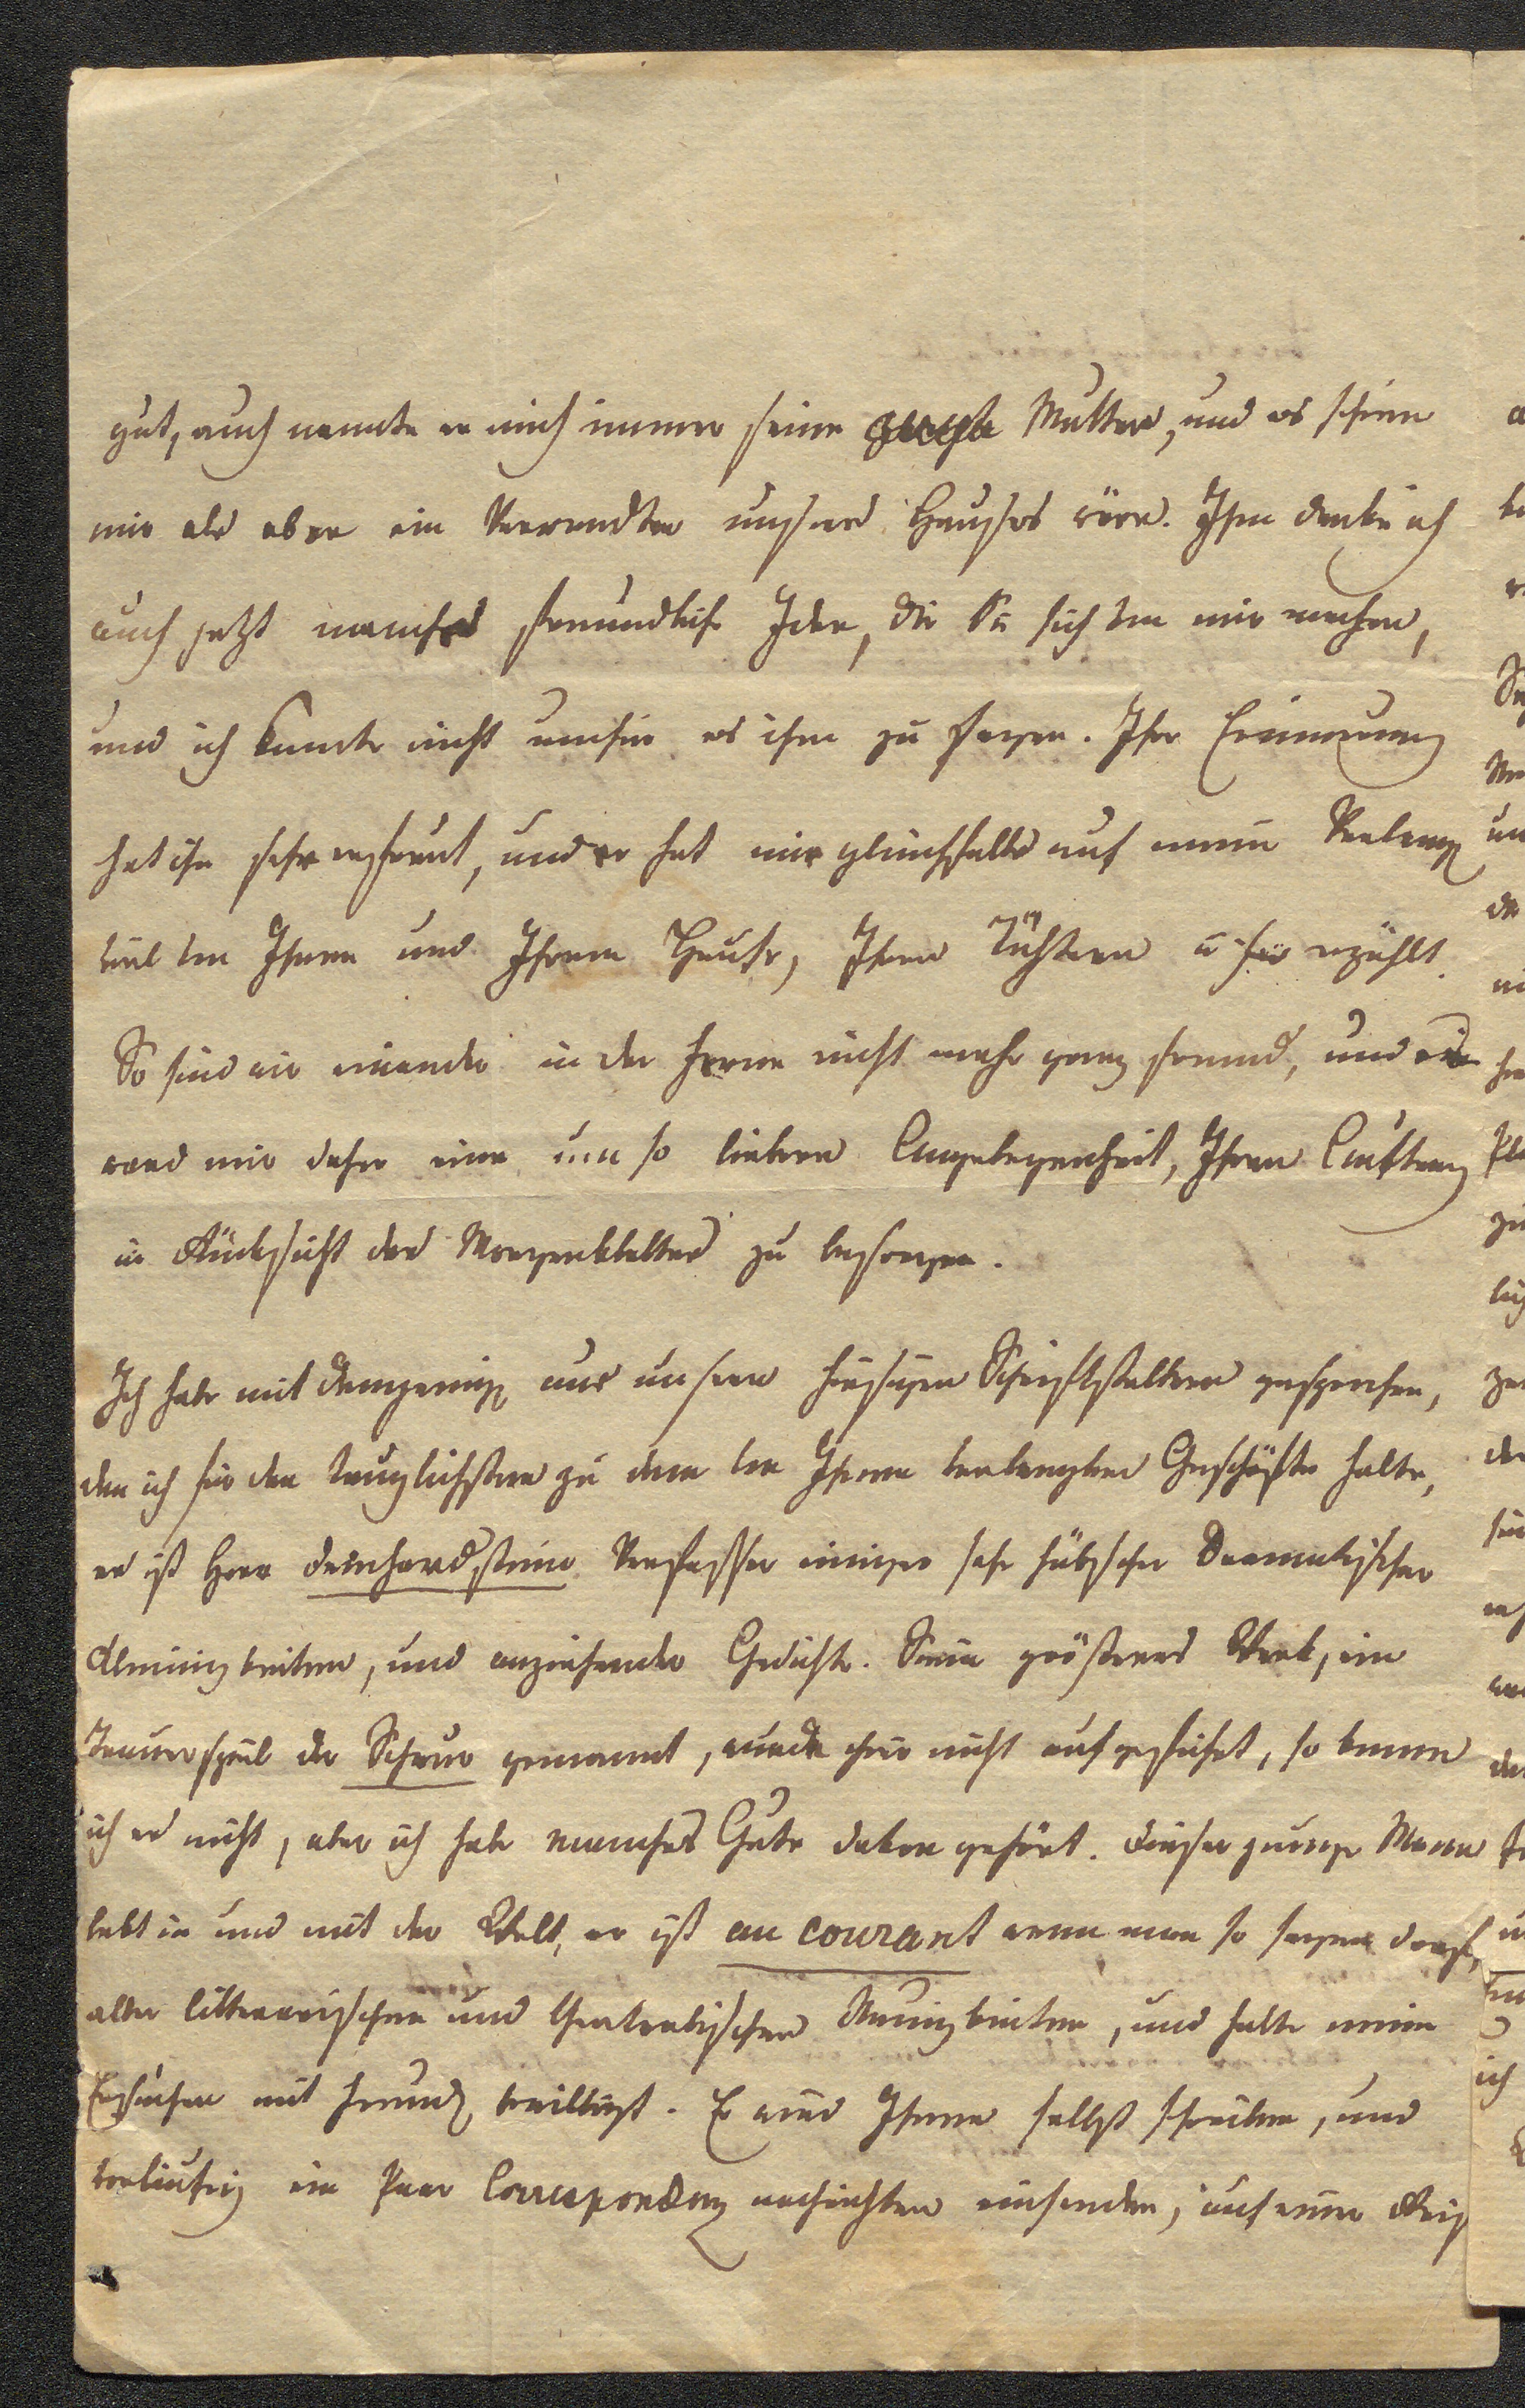 gut, auch nannte er mich immer seine zweyte Mutter, und es schien
mir als ob er ein Verwandter unsers Hauses wäre. Ihm danke ich
auch jetzt manche freundliche Idee, die Sie sich von mir machen,
und ich konnte nicht umhin es ihm zu sagen. Ihre Erinnerung
hat ihn sehr erfreut, und er hat mir gleichfalls auf mein Verlangen
viel von Ihnen und Ihrem Hause, Ihren Töchtern erzählt.
So sind wir einander in der Ferne nicht mehr ganz fremd, und
ward mir daher eine um so liebere Angelegenheit, Ihren Auftrag
in Rücksicht des Morgenblattes zu besorgen.
Ich habe mit demjenigen aus unsern hiesigen Schriftstellern gesprochen,
den ich für den tauglichsten zu dem von Ihnen verlangten Geschäfte halte,
es ist Herr Deinhardstein Verfasser einiger sehr hübscher Dramatischer
Kleinigkeiten, und anziehender Gedichte. Sein größeres Werk, ein
Trauerspiel der genannt, wurde hier nicht aufgeführt, so kenne
ich es nicht, aber ich habe manches Gute davon gehört. Dieser junge Mann
lebt in und mit der Welt, er ist au courant wenn man so sagen darf,
aller litterarischen und theatralischen Neuigkeiten, und hatte mein
Ersuchen mit Freuden bewilligt. Er wird Ihnen selbst schreiben, und
vorläufig ein Paar Correspondenz nachrichten einsenden, auf einer Reise